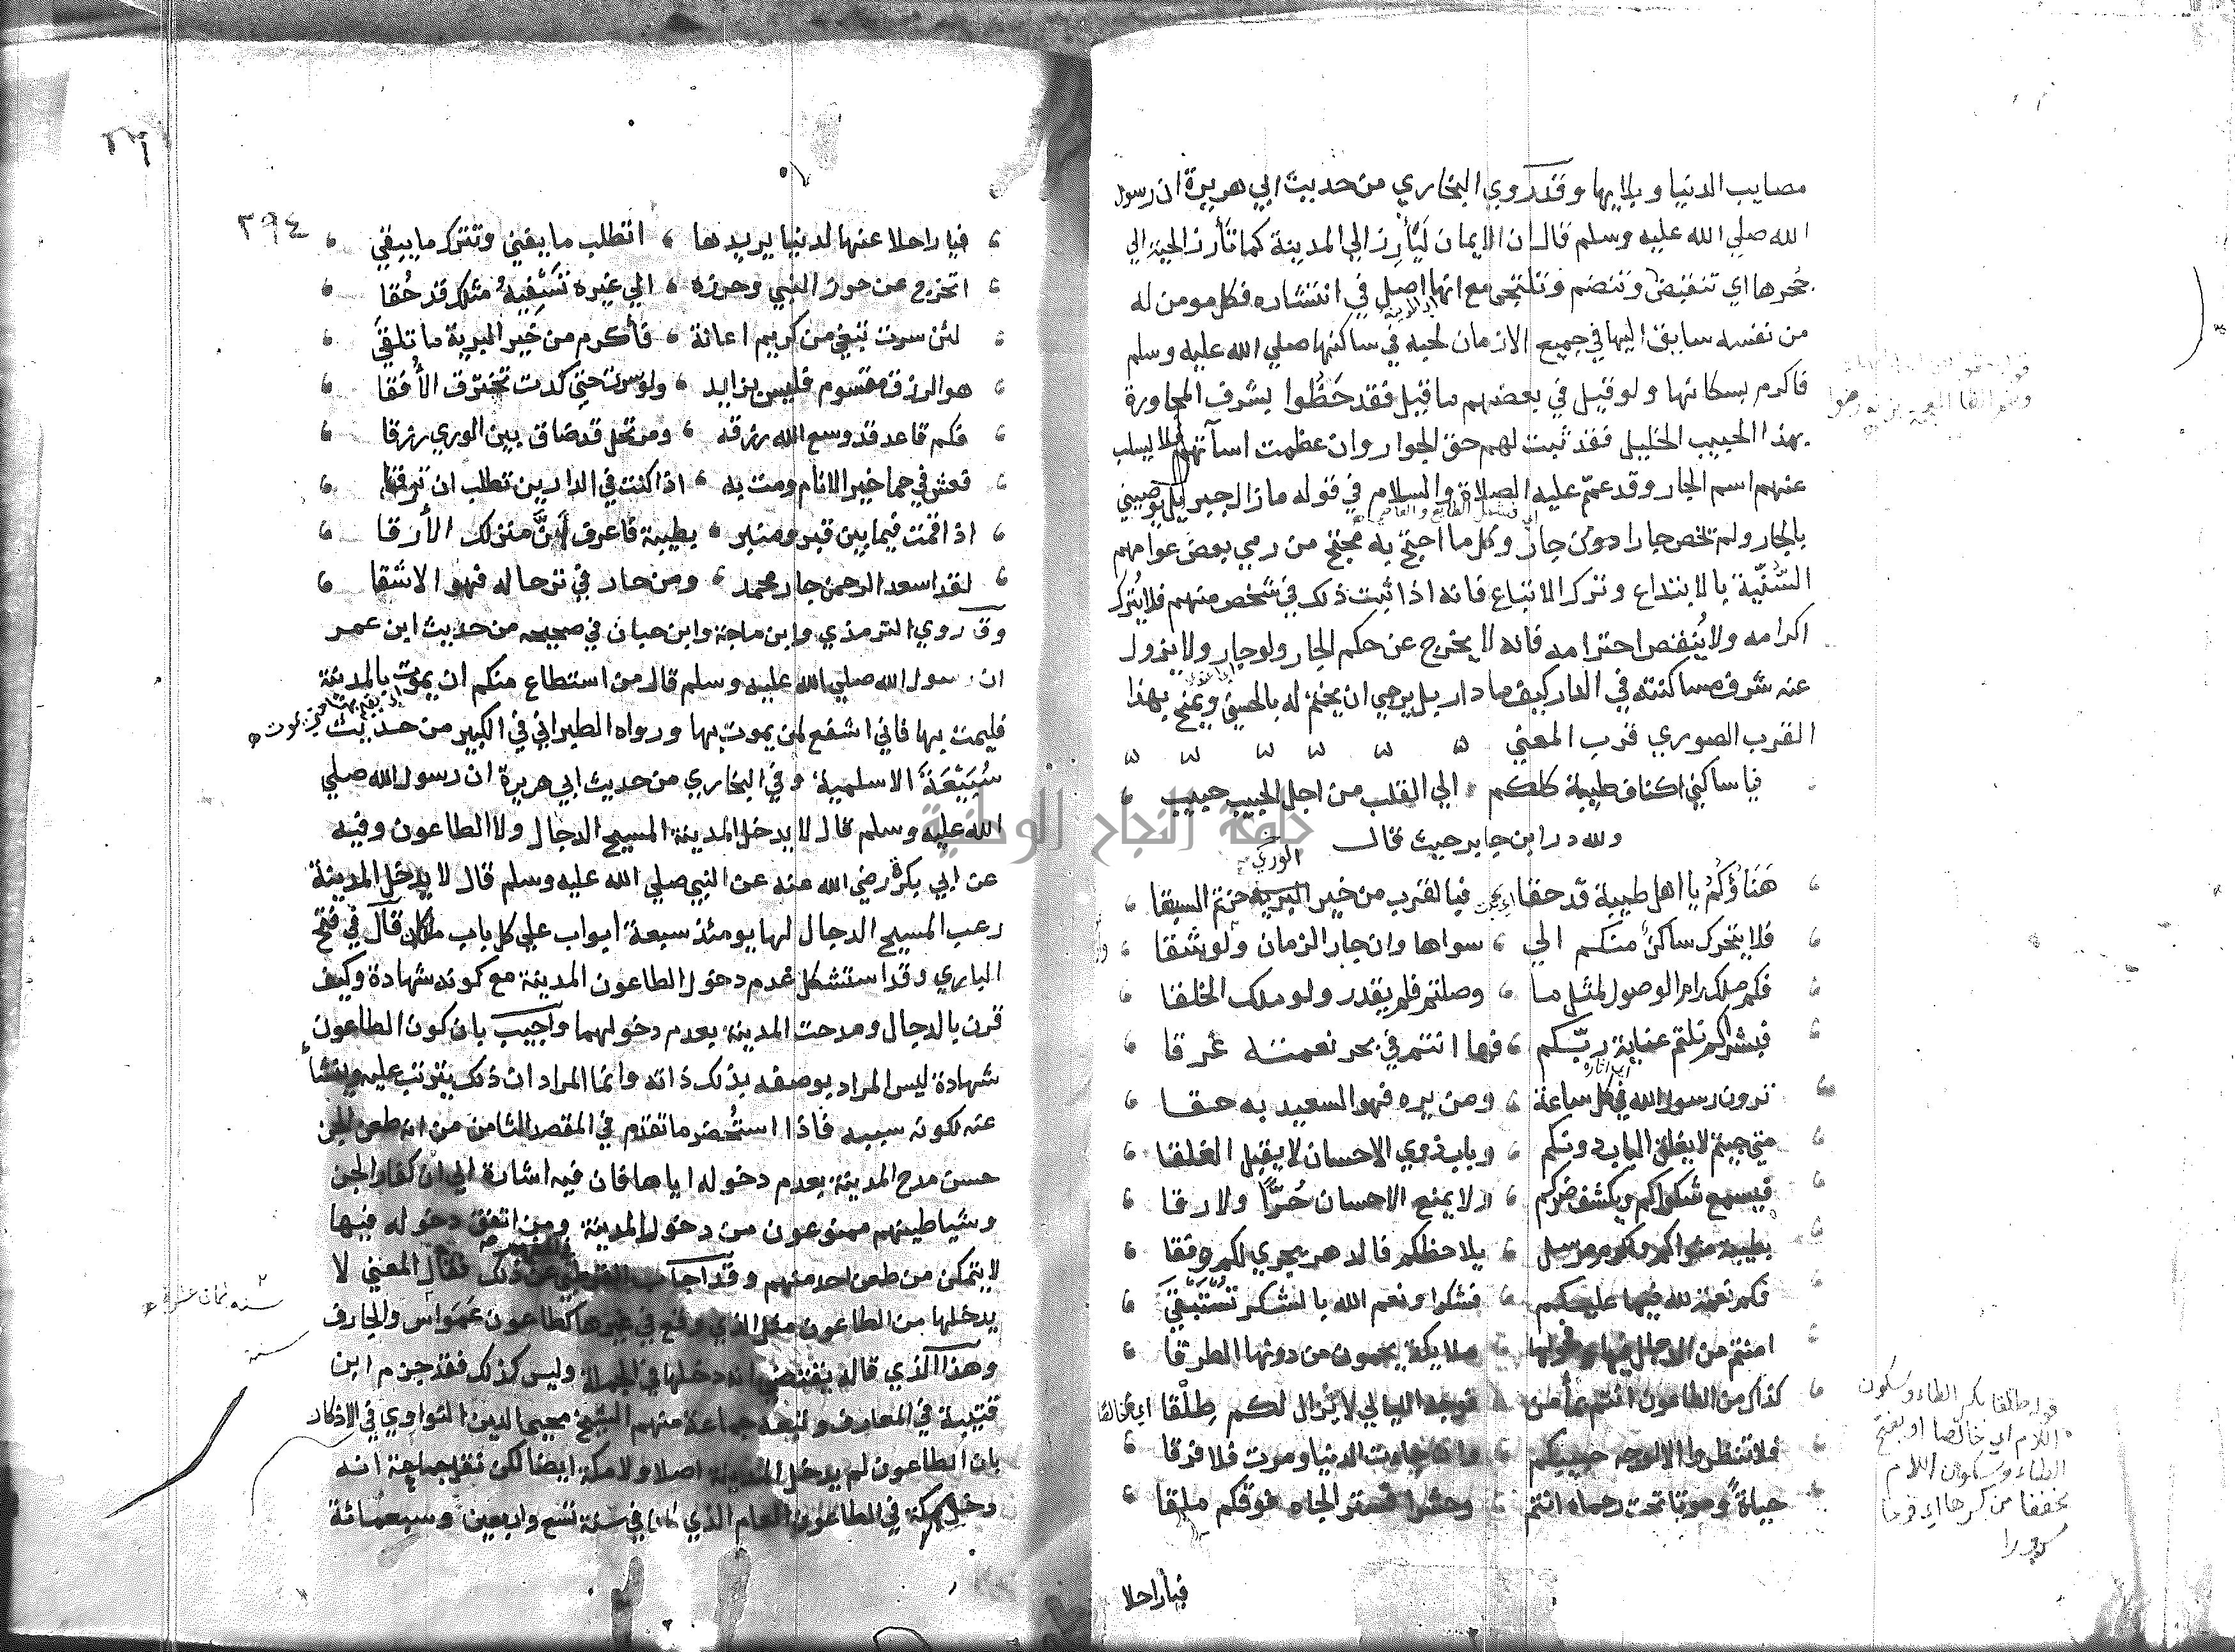 مصايب الدنيا وبلايها وقد روي البخاري من حديث ابي هريرة ان رسول
الله صلي الله عليه وسلم قال ان الايمان ليأرز الي المدينة كما تأرز الحية الي
جحرها اي تنقبض وتنضم وتلتجي مع انها اصل في انتشاره فكل مومن له
من نفسه سايق اليها في جميع الازمان لحبه في ساكنها صلي الله عليه وسلم
فاكرم بسكانها ولو قيل في بعضهم ما قيل فقد حظوا بشرف المجاورة
بهذا الحبيب الخليل فقد ثبت لهم حق الجوار وان عظمت اسآتهم فلا يسلب
عنهم اسم الجار وقد عمّ عليه الصلاة والسلام في قوله ما زال جبريل يوصيني
بالجار ولم تخص جارا دون جار وكل ما احتج به محتج من رمي بعض عوامهم
السُّنّية بالابتداع وترك الاتباع فانه اذا ثبت ذلك في شخص منهم فلا يُترك
اكرامه ولا يُنقص احترامه فانه لا يخرج عن حكم الجار ولو جار ولا يزول
عنه شرف مساكنته في الدار كيف ما دار بل يرجي ان يختم له بالحسني ويمنح بهذا
القرب الصوري قرب المعني
فيا ساكني اكناف طيبة كلكم الي القلب من اجل الحبيب حبيب
ولله در ابن جابر حيث قال
الوري
هَنَاؤُكُمُ يا اهل طيبة قد حقا فبالقرب من خير البرية حزتم السبقا
فلا يتحرك ساكنٌ منكم الي سواها وان جار الزمان ولو شقا
فكم ملك رام الوصول لمثل ما وصلتم فلم يقدر ولو ملك الخلقا
فبشراكم نلتم عناية ربّكم فها انتم في بحر نعمته غرقا
ترون رسول الله في كل ساعة ومن يره فهو السعيد به حقا
متي جيتم لا يغلق الباب دونكم وباب ذوي الاحسان لا يقبل الغلقا
فيسمع شكواكم ويكشف ضركم ولا يمنع الاحسان حُرًّا ولا رقا
بطيبة مثواكم واكرم مرسل يلاحظكم فالدهر يجري لكم وفقا
فكم نعمة لله فيها عليكم فشكرا ونعم الله بالشكر تُسْتَبْقَي
امنتم من الدجال فيها فحولها ملايكة يحمون من دونها الطرقا
كذاك من الطاعون انتم بمأمن فوجه الليالي لا يزال لكم طِلْقا
فلا تنظروا الا لوجه حبيبكم وان جاءت الدنيا ومرت فلا فرقا
حياةً وموتا تحت رحماه انتم وحشرا فستر الجاه فوقكم ملقا
قوله طلقا بكسر الطاء وسكون
اللام اي خالصا او بفتح
الطاء وسكون اللام
مخففا من كسرها اي فرحا
مسرورا
فيا راحلا
٣٩٤
فيا راحلا عنها لدنيا يريدها اتطلب ما يفني وتترك ما يبقي
اتخرج عن حوز النبي وحرزه الي غيره تَسْفِيهُ مثلك قد حُقا
لئن سرت تبغي من كريم اعانة فأكرم من خير البرية ما تلقَي
هو الرزق مقسوم فليس بزايد ولو سرت حتي كدت تخترق الأُفقا
فكم قاعد قد وسع الله رزقه ومرتحل قد ضاق بين الوري رزقا
فعش في حما خير الانام ومت به اذا كنت في الدارين تطلب ان ترقا
اذا قمت فيما بين قبر ومنبر بطيبة فاعرف أنَّ منزلك الأرقا
لقد اسعد الرحمن جار محمد ومن جار في ترحاله فهو الاشقا
وقد روي الترمذي وابن ماجة وابن حبان في صحيحه من حديث ابن عمر
ان رسول الله صلي الله عليه وسلم قال من استطاع منكم ان يموت بالمدينة
فليمت بها فاني اشفع لمن يموت بها ورواه الطبراني في الكبير من حديث
سُبَيْعَةَ الاسلمية وفي البخاري من حديث ابي هريرة ان رسول الله صلي
الله عليه وسلم قال لا يدخل المدينة المسيح الدجال ولا الطاعون وفيه
عن ابي بكرة رضي الله عنه عن النبي صلي الله عليه وسلم قال لا يدخل المدينة
رعب المسيح الدجال لها يومئذ سبعة ابواب علي كل باب ملكان قال في فتح
الباري وقد استشكل عدم دخول الطاعون المدينة مع كونه شهادة وكيف
قرن بالدجال ومدحت المدينة بعدم دخولهما واجيب بان كون الطاعون
شهادة ليس المراد بوصفه بذلك ذاته وانما المراد ان ذلك يترتب عليه وينشأ
عنه لكونه سببه فاذا استُحضر ما تقدم في المقصد الثامن من انه طعن الجن
حسن مدح المدينة بعدم دخوله اياها فان فيه اشارة الي ان كفار الجن
وشياطينهم ممنوعون من دخول المدينة ومن اتفق دخوله فيها
لا يتمكن من طعن احد منهم وقد اجاب القرطبي عن ذلك فقال المعني لا
يدخلها من الطاعون مثل الذي وقع في غيرها كطاعون عَمَواس والجارف
وهذا الذي قاله يقتضي انه دخلها في الجملة وليس كذلك فقد جزم ابن
قتيبة في المعارف وتبعه جماعة منهم الشيخ محيي الدين النواوي في الاذكار
بان الطاعون لم يدخل المدينة اصلا ولا مكة ايضا لكن نقل جماعة انه
دخل مكة في الطاعون العام الذي كان في سنة تسع واربعين وسبعمائة
سنة ثمان عشرة
جامعة النجاح الوطنية